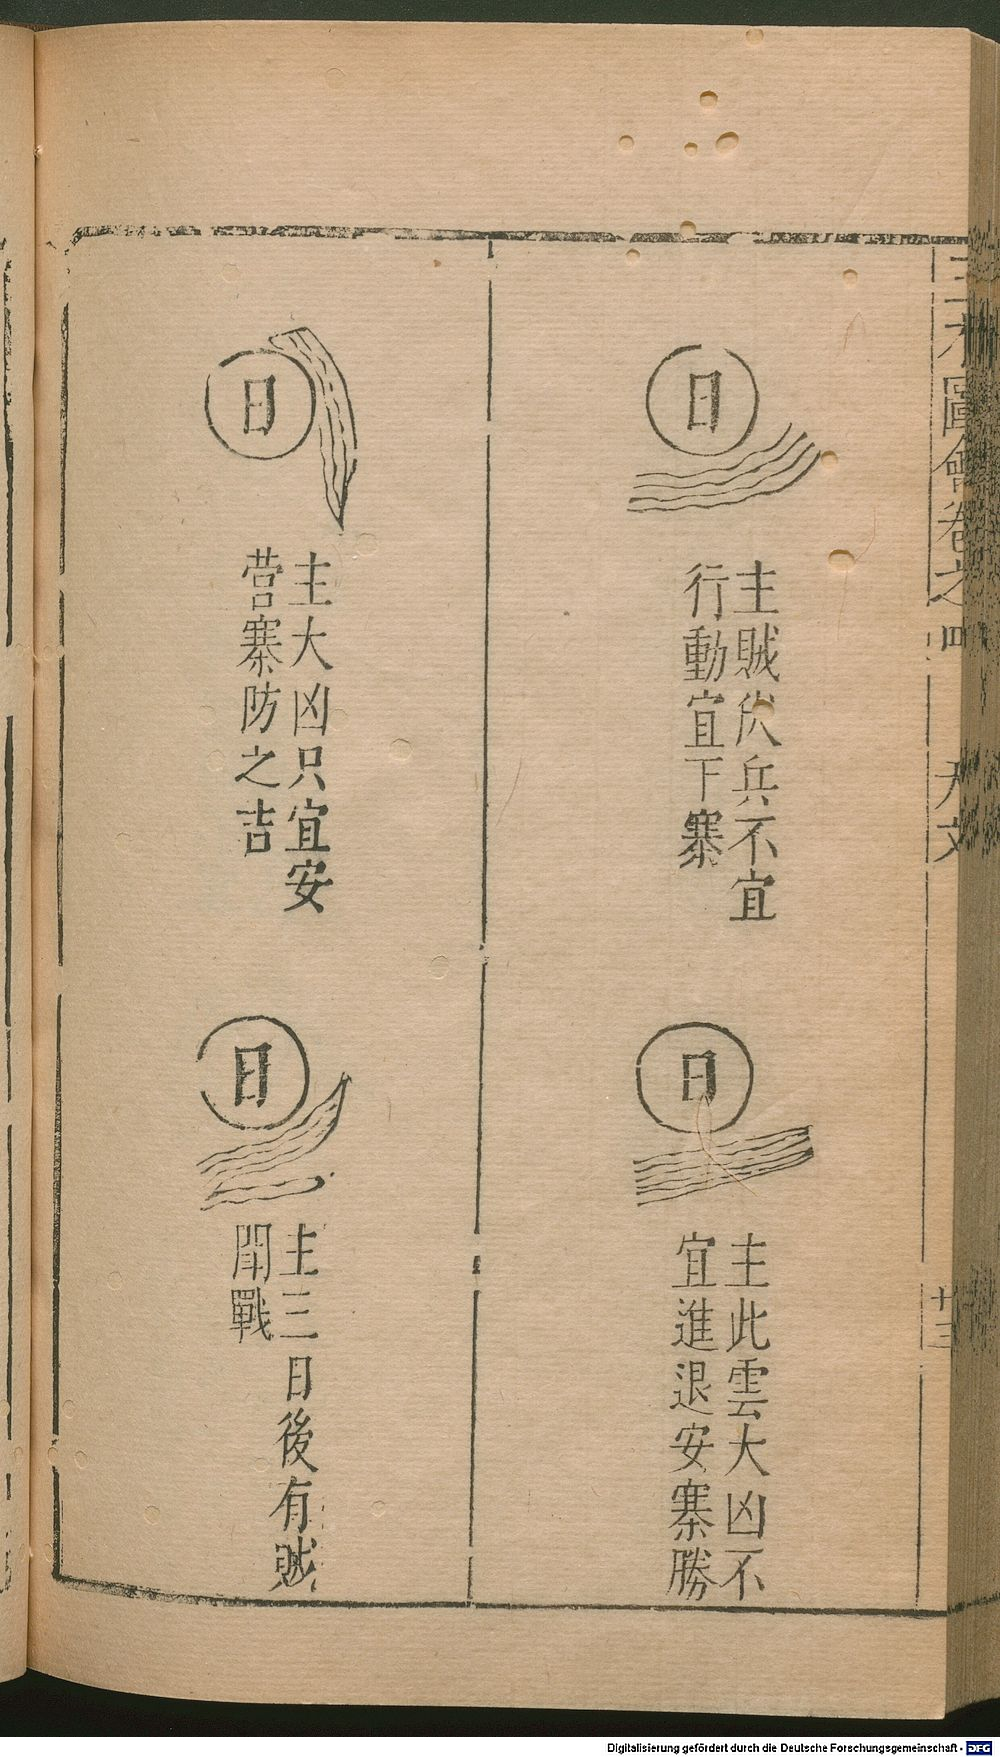 三才圖會卷之四
天文
廿三
日
主賊伏兵不宜
行動宜下寨
日
主此雲大凶不
宜進退安寨勝
日
主大凶只宜安
营寨防之吉
日
主三日後有賊
閗戰
Digitalisierung gefördert durch die Deutsche Forschungsgemeinschaft - DFG